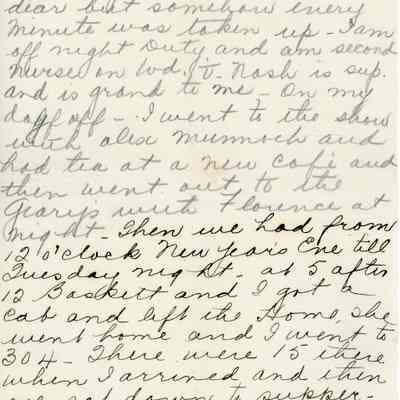 dear but somehow every
minute was taken up - I am
off night Duty and am second
Nurse on Wd. J. Nash is sup.
and is grand to me - On my
day off - I went to the show
with alex Murnoch and
had tea at a new Cafe and
then went out to the
Geary's with Florence at
night - Then we had from
12 o'clock New Year's Eve till
Tuesday night - at 5 after
12 Baskett and I got a
Cab and left the Home she
went home and I went to
304 - There were 15 there
when I arrived and then
we sat down to supper -